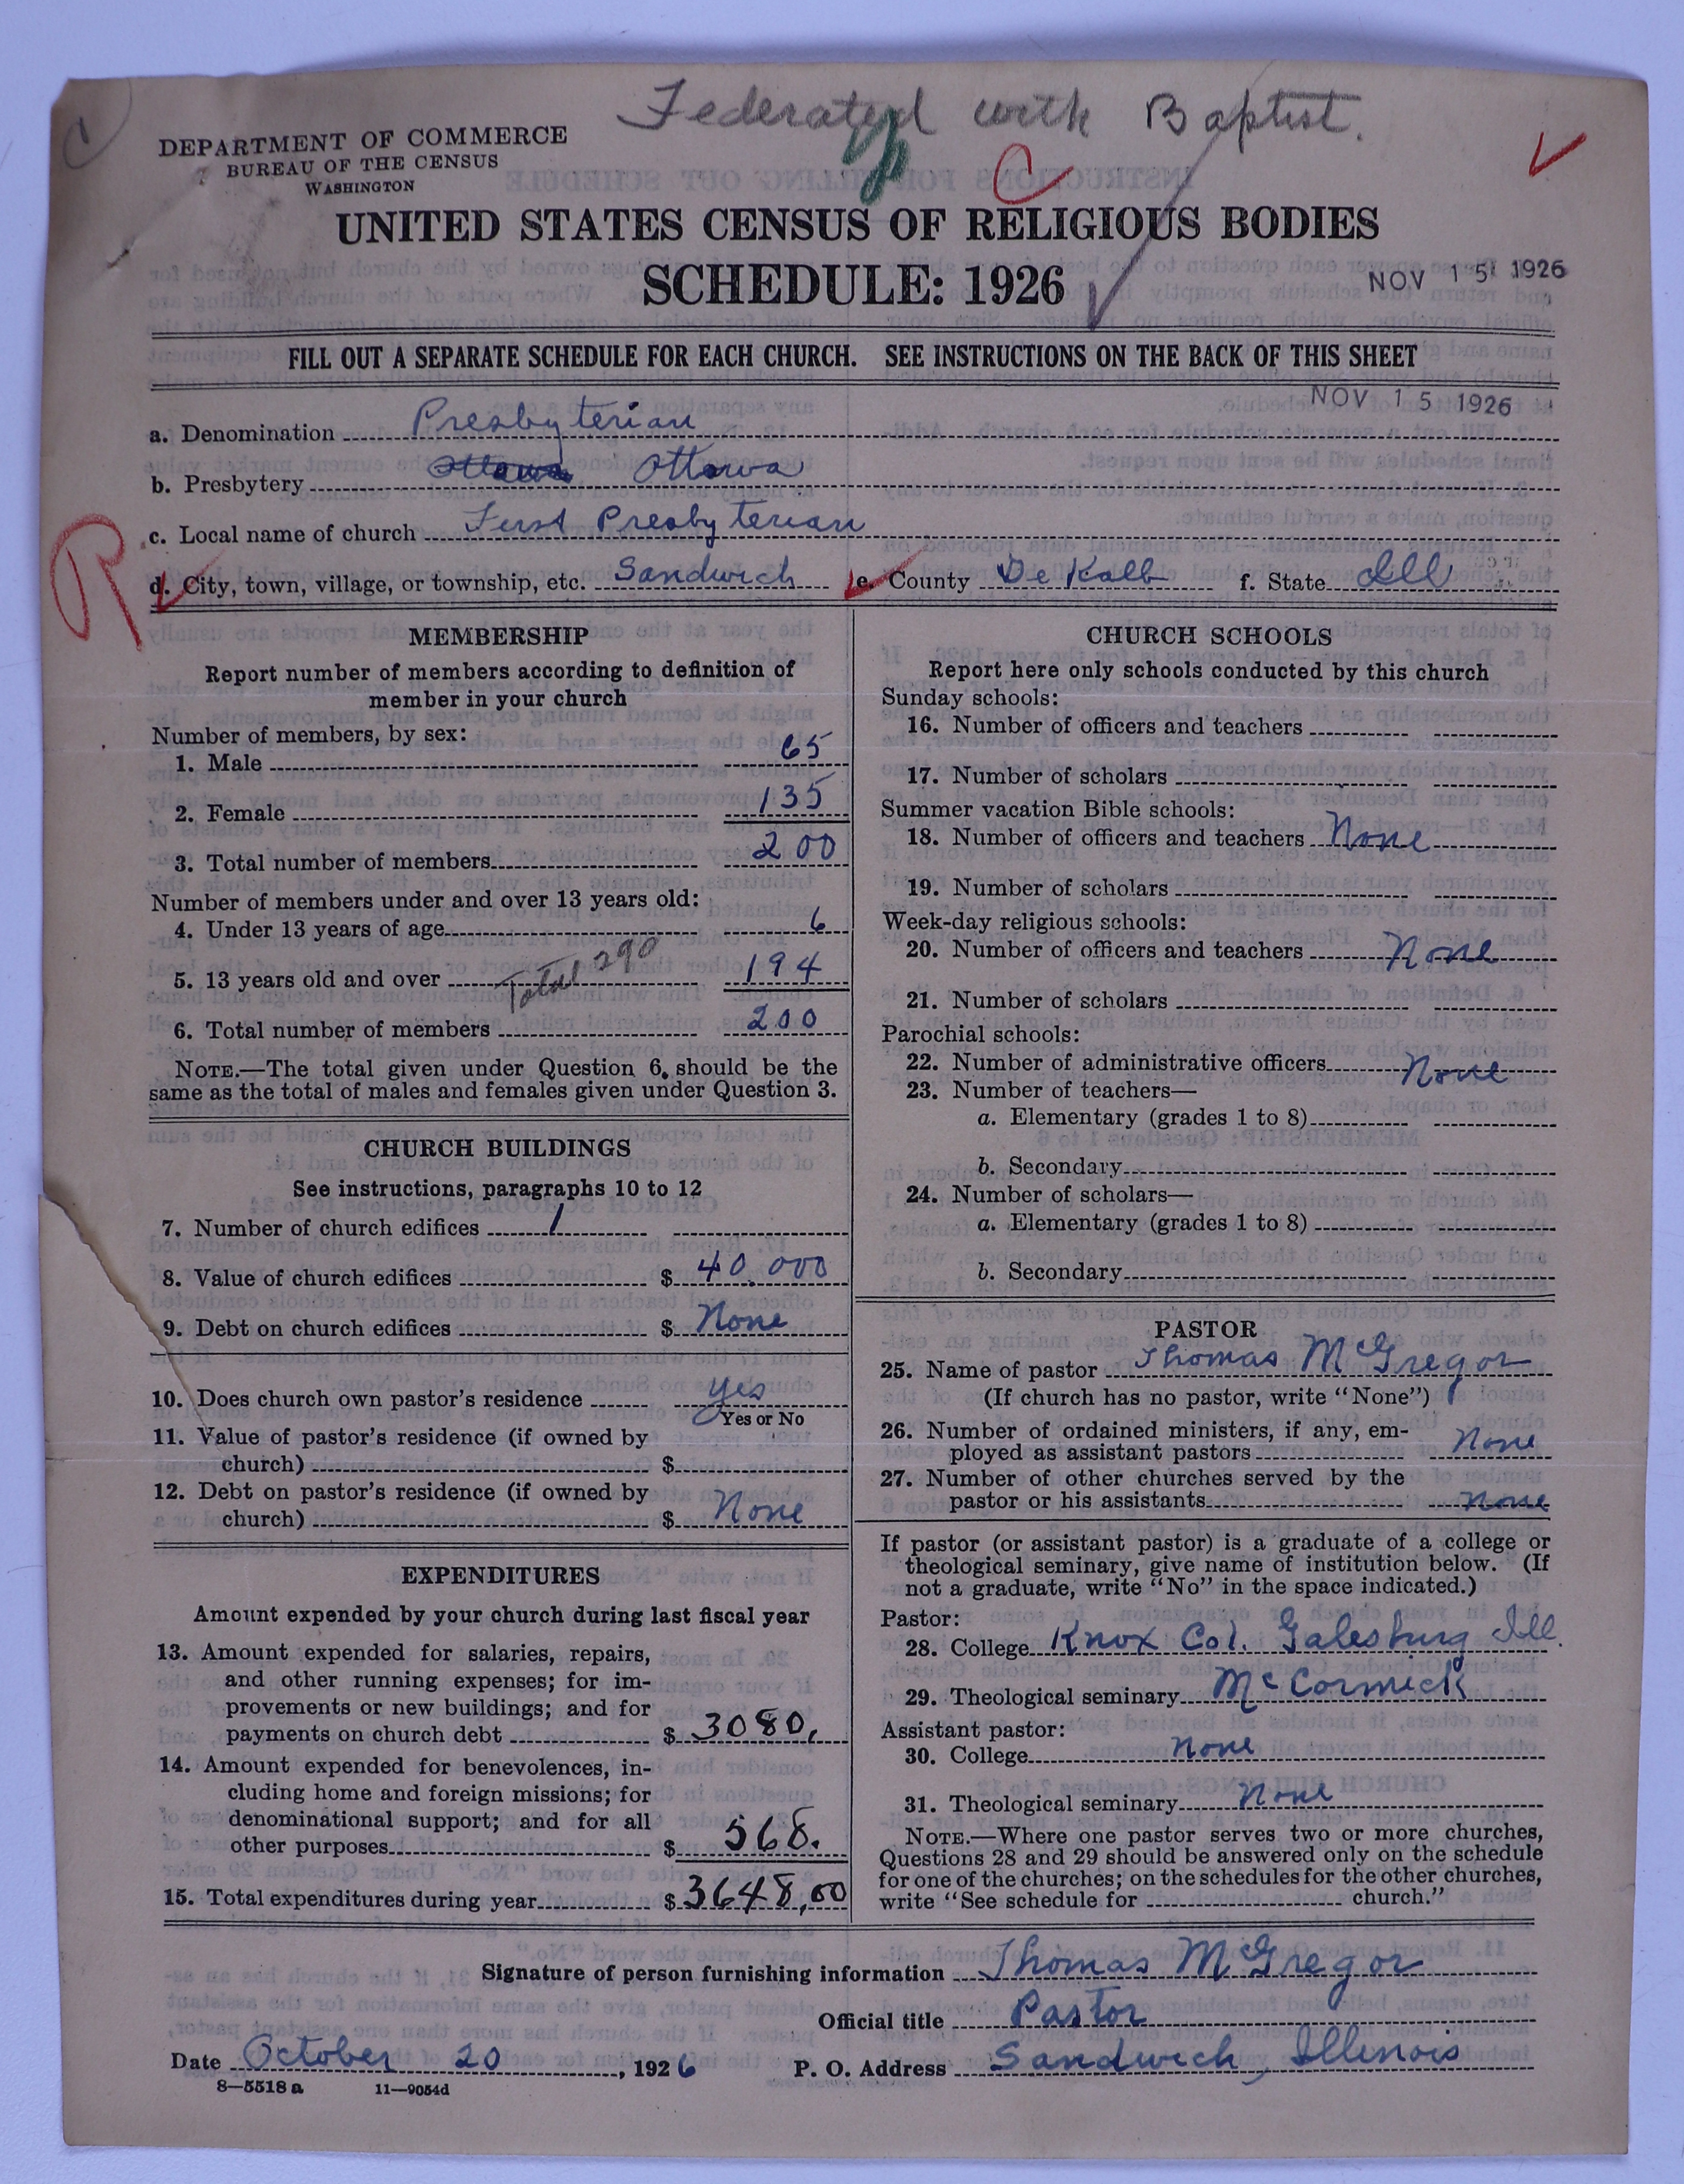 Federated with Baptist.
DEPARTMENT OF COMMERCE
BUREAU OF THE CENSUS
WASHINGTON
UNITED STATES CENSUS OF RELIGIOUS BODIES
SCHEDULE: 1926
NOV 15 1926
FILL OUT A SEPARATE SCHEDULE FOR EACH CHURCH. SEE INSTRUCTIONS ON THE BACK OF THIS SHEET
NOV 15 1926
a. Denomination Presbyterian
b. Presbytery Ottawa Ottawa
c. Local name of church First Presbyterian
d. City, town, village, or township, etc. Sandwich e. County De Kalb f. State Ill
MEMBERSHIP
Report number of members according to definition of
member in your church
Number of members, by sex:
1. Male 65
2. Female 135
3. Total number of members 200
Number of members under and over 13 years old:
4. Under 13 years of age 6
5. 13 years old and over Total 290 194
6. Total number of members 200
NOTE.—The total given under Question 6, should be the
same as the total of males and females given under Question 3.
CHURCH BUILDINGS
See instructions, paragraphs 10 to 12
7. Number of church edifices 1
8. Value of church edifices $ 40,000
9. Debt on church edifices $ None
10. Does church own pastor's residence yes
Yes or No
11. Value of pastor's residence (if owned by
church) $
12. Debt on pastor's residence (if owned by
church) $ None
EXPENDITURES
Amount expended by your church during last fiscal year
13. Amount expended for salaries, repairs,
and other running expenses; for im-
provements or new buildings; and for
payments on church debt $ 3080.
14. Amount expended for benevolences, in-
cluding home and foreign missions; for
denominational support; and for all
other purposes $ 568.
15. Total expenditures during year $ 3648,00
CHURCH SCHOOLS
Report here only schools conducted by this church
Sunday schools:
16. Number of officers and teachers
17. Number of scholars
Summer vacation Bible schools:
18. Number of officers and teachers None
19. Number of scholars
Week-day religious schools:
20. Number of officers and teachers None
21. Number of scholars
Parochial schools:
22. Number of administrative officers None
23. Number of teachers—
a. Elementary (grades 1 to 8)
b. Secondary
24. Number of scholars—
a. Elementary (grades 1 to 8)
b. Secondary
PASTOR
25. Name of pastor Thomas McGregor
(If church has no pastor, write "None")
26. Number of ordained ministers, if any, em-
ployed as assistant pastors None
27. Number of other churches served by the
pastor or his assistants none
If pastor (or assistant pastor) is a graduate of a college or
theological seminary, give name of institution below. (If
not a graduate, write "No" in the space indicated.)
Pastor:
28. College Knox Col. Galesburg Ill.
29. Theological seminary McCormick
Assistant pastor:
30. College None
31. Theological seminary None
NOTE.—Where one pastor serves two or more churches,
Questions 28 and 29 should be answered only on the schedule
for one of the churches; on the schedules for the other churches,
write "See schedule for church."
Signature of person furnishing information Thomas McGregor
Official title Pastor
Date October 20, 1926 P. O. Address Sandwich, Illinois
8—5518 a 11—9054d